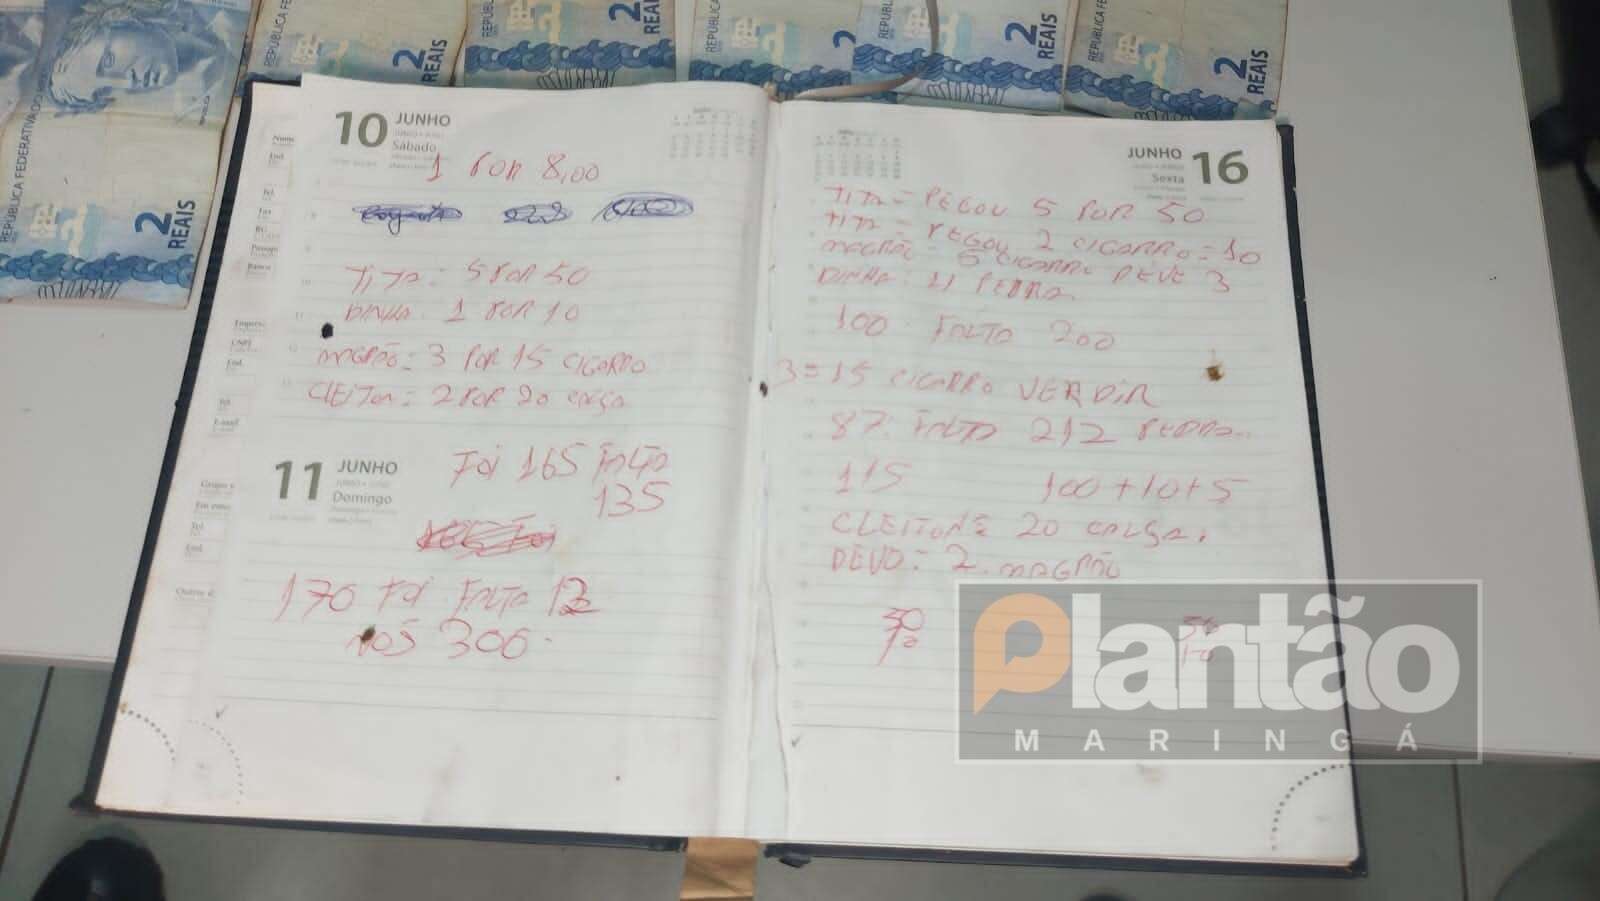 REPÚBLICA FEDERATIVA DO
2
REAIS
REPÚBLICA FEDERATIVA
2
REAIS
REPÚBLICA FEDERATIVA
2
REAIS
2
REAIS
REPÚBLICA FEDERA
2
REAIS
REPÚBLICA FEDERA
2
REAIS
10 JUNHO
Sábado
1 POR 8,00
TITA: 5 POR 50
DINHA: 1 POR 10
MAGRÃO: 3 POR 15 CIGARRO
CLEITON = 2 POR 20 CALÇA
11 JUNHO
Domingo
FOI 165 FALTA
135
170 FOI FALTA 12
NOS 300
JUNHO 16
Sexta
TITA = PEGOU 5 POR 50
TITA = PEGOU 2 CIGARRO = 10
MAGRÃO = 5 CIGARRO DEVE 3
DINHA: 11 PEDRA
100 FALTA 200
3 = 15 CIGARRO VERDIR
87: FALTA 212 PEDRA
115 100+10+5
CLEITON = 20 CALÇA.
DEVO: 2 MAGRÃO
50
10
Plantão
MARINGÁ